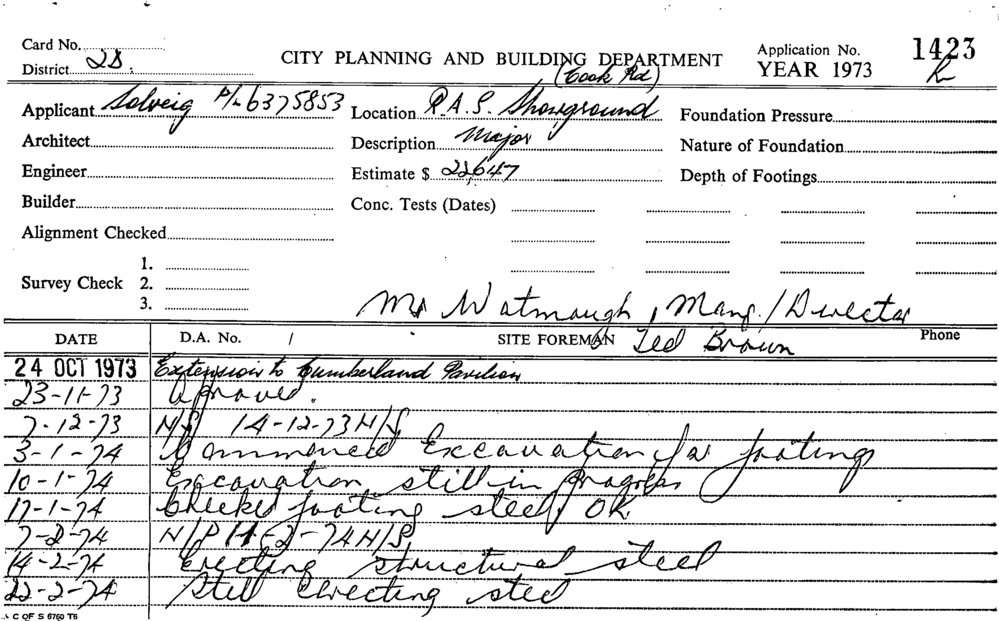 Card No.
District 2B
CITY PLANNING AND BUILDING DEPARTMENT
(Cook Rd)
Application No. 1423
YEAR 1973
Applicant Solveig P/L 6375853
Location R.A.S. Showground
Foundation Pressure
Architect
Description Major
Nature of Foundation
Engineer
Estimate $ 22,647
Depth of Footings
Builder
Conc. Tests (Dates)
Alignment Checked
Survey Check
1.
2.
3.
Mr Watmaugh, Mang./Director
DATE
D.A. No. /
SITE FOREMAN Ted Brown
Phone
24 OCT 1973 Extension to Cumberland Pavilion
23-11-73 Aproved.
7-12-73 N/S 14-12-73 N/S
3-1-74 Commenced Excavation for footings
10-1-74 Excavation still in progress
17-1-74 Checked footing steel OK
7-2-74 N/P 11-2-74 N/S
14-2-74 Erecting structural steel
22-2-74 Still Errecting steel
C OF S 6760 T6